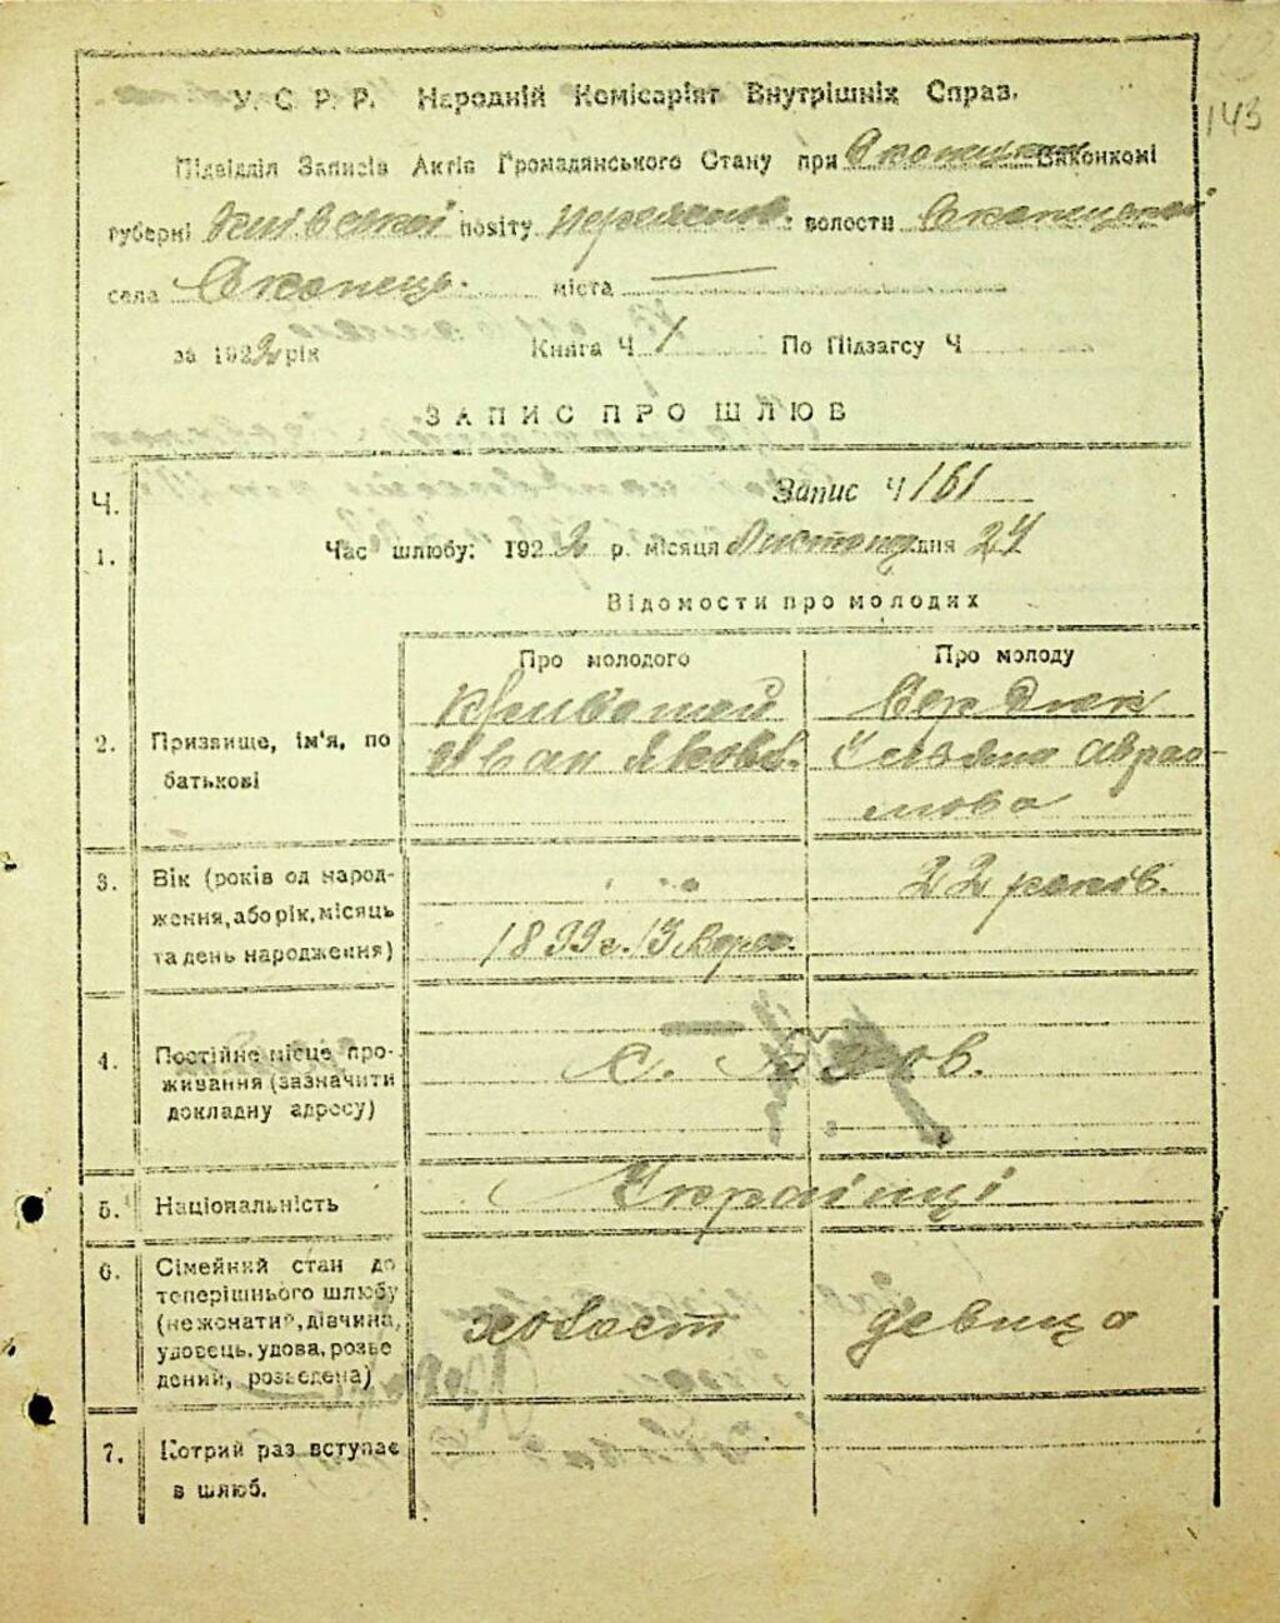 143
У. С. Р. Р. Народній Комісаріят Внутрішніх Справ.
Підвідділ Записів Актів Громадянського Стану при Скопецком Виконкомі
губерні Киівськоі повіту Переяслов. волости Скопецькоі
села Скопець. міста
за 1922 рік Книга Ч 1 По Підзагсу Ч
ЗАПИС ПРО ШЛЮБ
Ч. Запис Ч 161
1. Час шлюбу: 1922 р. місяця Листопад. дня 24
Відомости про молодих
Про молодого Про молоду
Сердюк
2. Призвище, ім'я, по батькові
Иван Яковл. Ульяна Аврамова
3. Вік (років од народження, або рік, місяць та день народження)
22 років.
1899 г.
4. Постійне місце проживання (зазначити докладну адресу)
с.
5. Національність Українці
6. Сімейний стан до теперішнього шлюбу (нежонатий, дівчина, удовець, удова, розведений, розведена)
холост девица
7. Котрий раз вступає в шлюб.